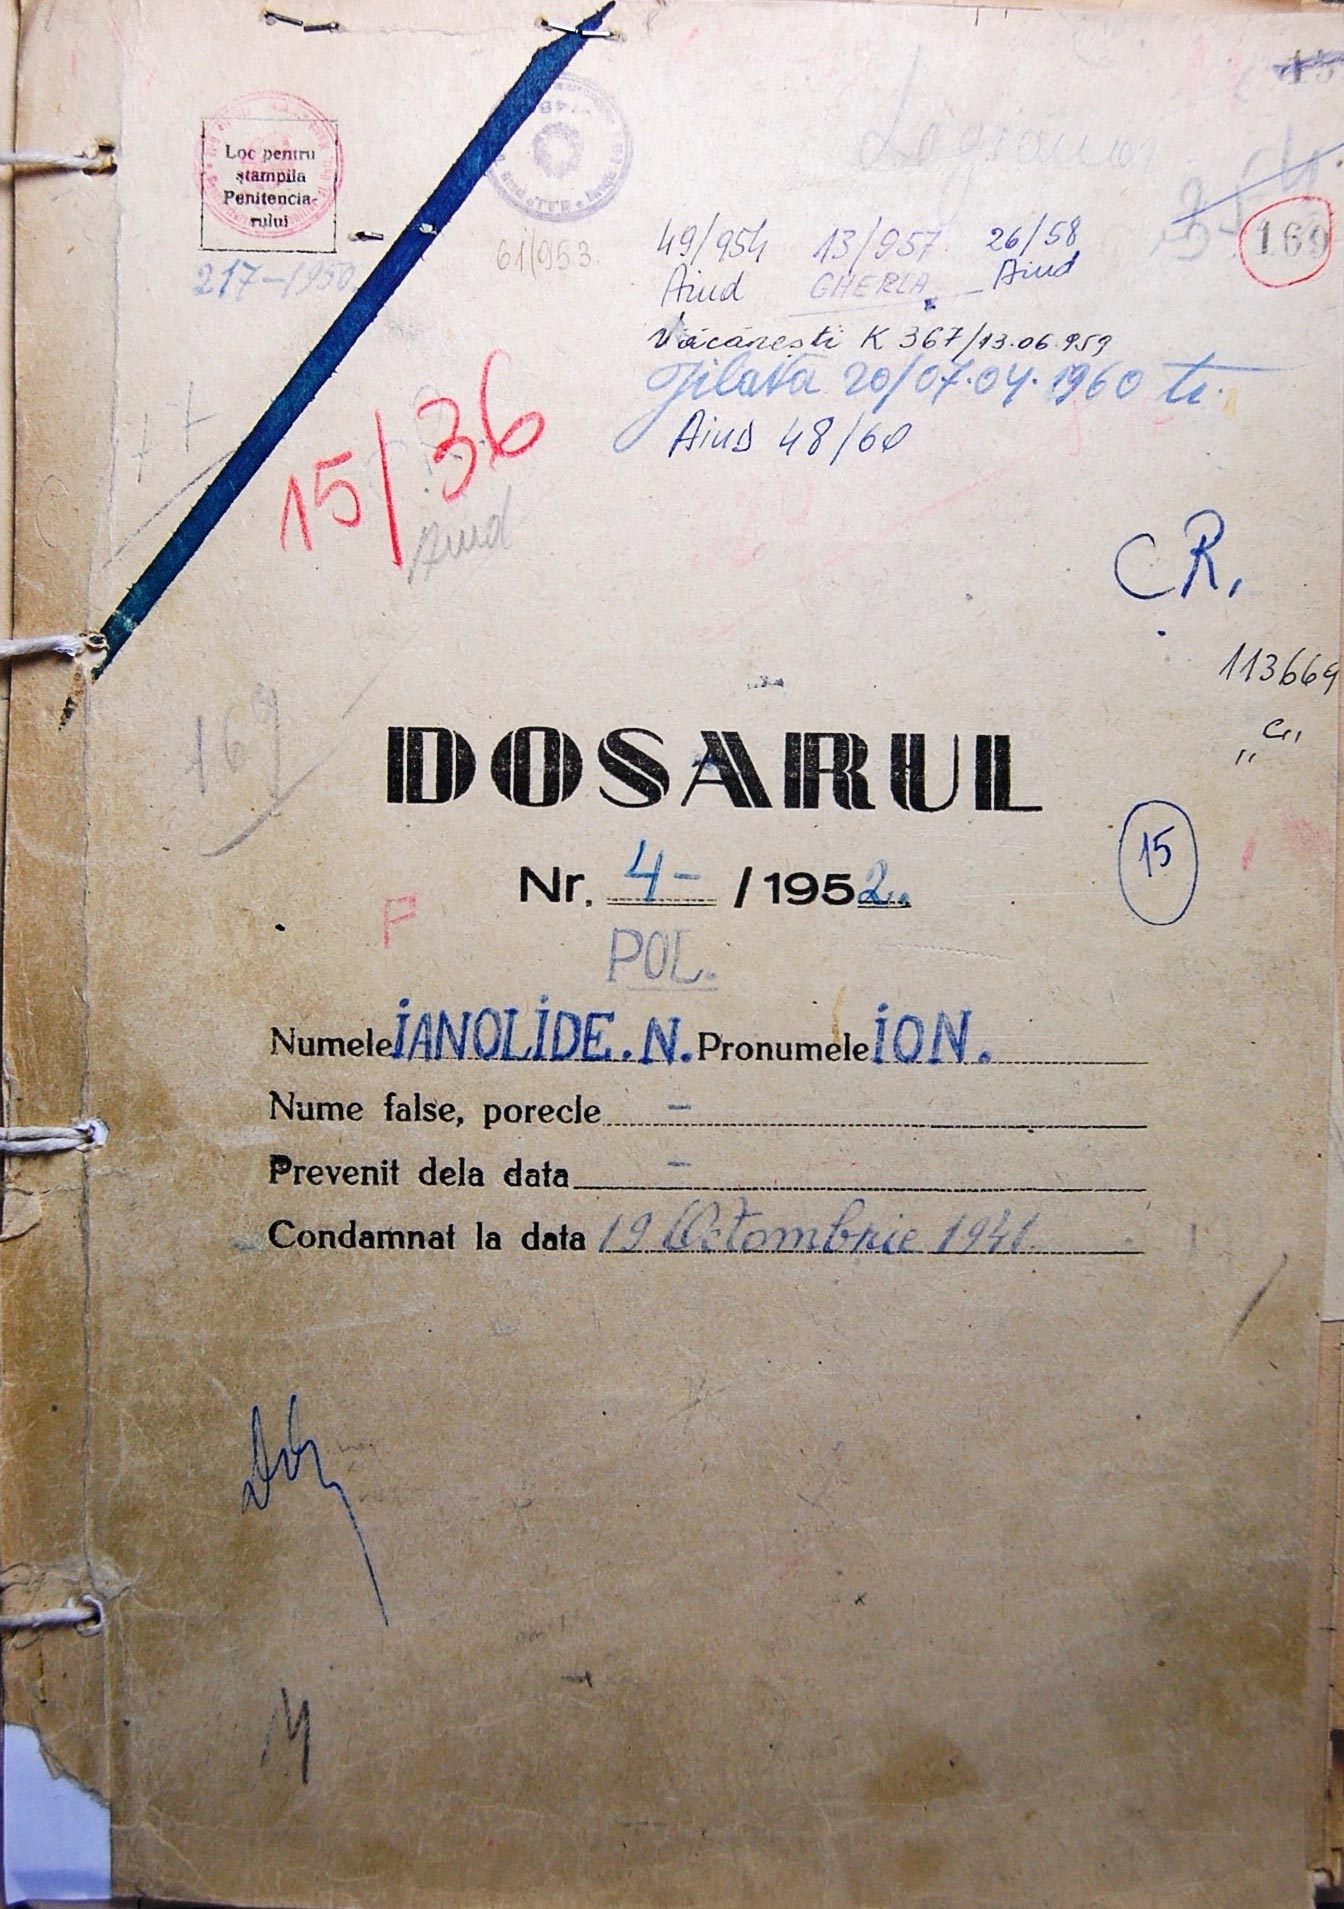 Loc pentru
ștampila
Penitencia-
rului
217-1950
61/953
49/954 13/957 26/58
Aiud GHERLA Aiud
169
Văcărești K 367/13.06.959
Jilava 20/07.04.1960
Aiud 48/60
15/36
Aiud
CR.
113669
"C"
169
DOSARUL
Nr. 4- / 1952
15
F
POL.
Numele IANOLIDE. N. Pronumele ION.
Nume false, porecle -
Prevenit dela data -
Condamnat la data 19 Octombrie 1941.